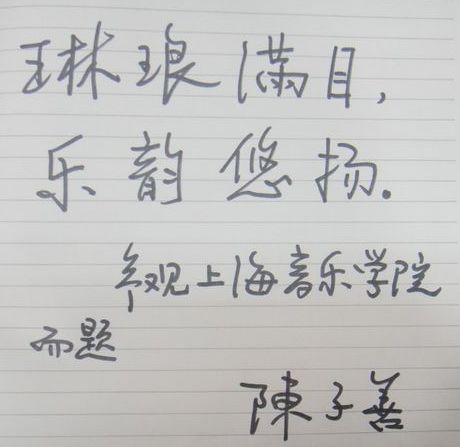 琳琅满目,
乐韵悠扬.
参观上海音乐学院
而题
陳子善